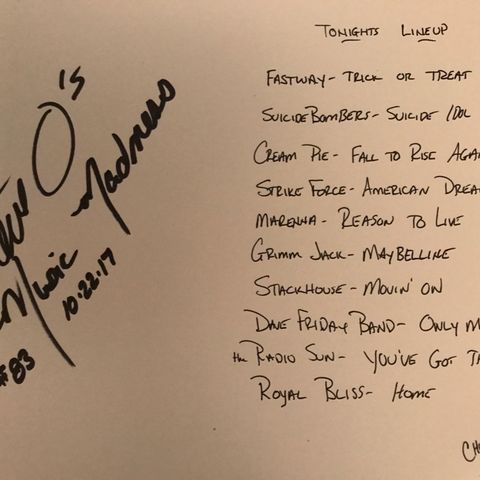 O's
Music Madness
10·22·17
#83
TONIGHTS LINEUP
FASTWAY- TRICK OR TREAT
SUICIDE BOMBERS- SUICIDE IDOL
CREAM PIE- FALL TO RISE AGA
STRIKE FORCE- AMERICAN DREA
MARENNA- REASON TO LIVE
GRIMM JACK- MAYBELLINE
STACKHOUSE- MOVIN' ON
DAVE FRIDAY BAND- ONLY M
the RADIO SUN- YOU'VE GOT T
ROYAL BLISS- HOME
CH